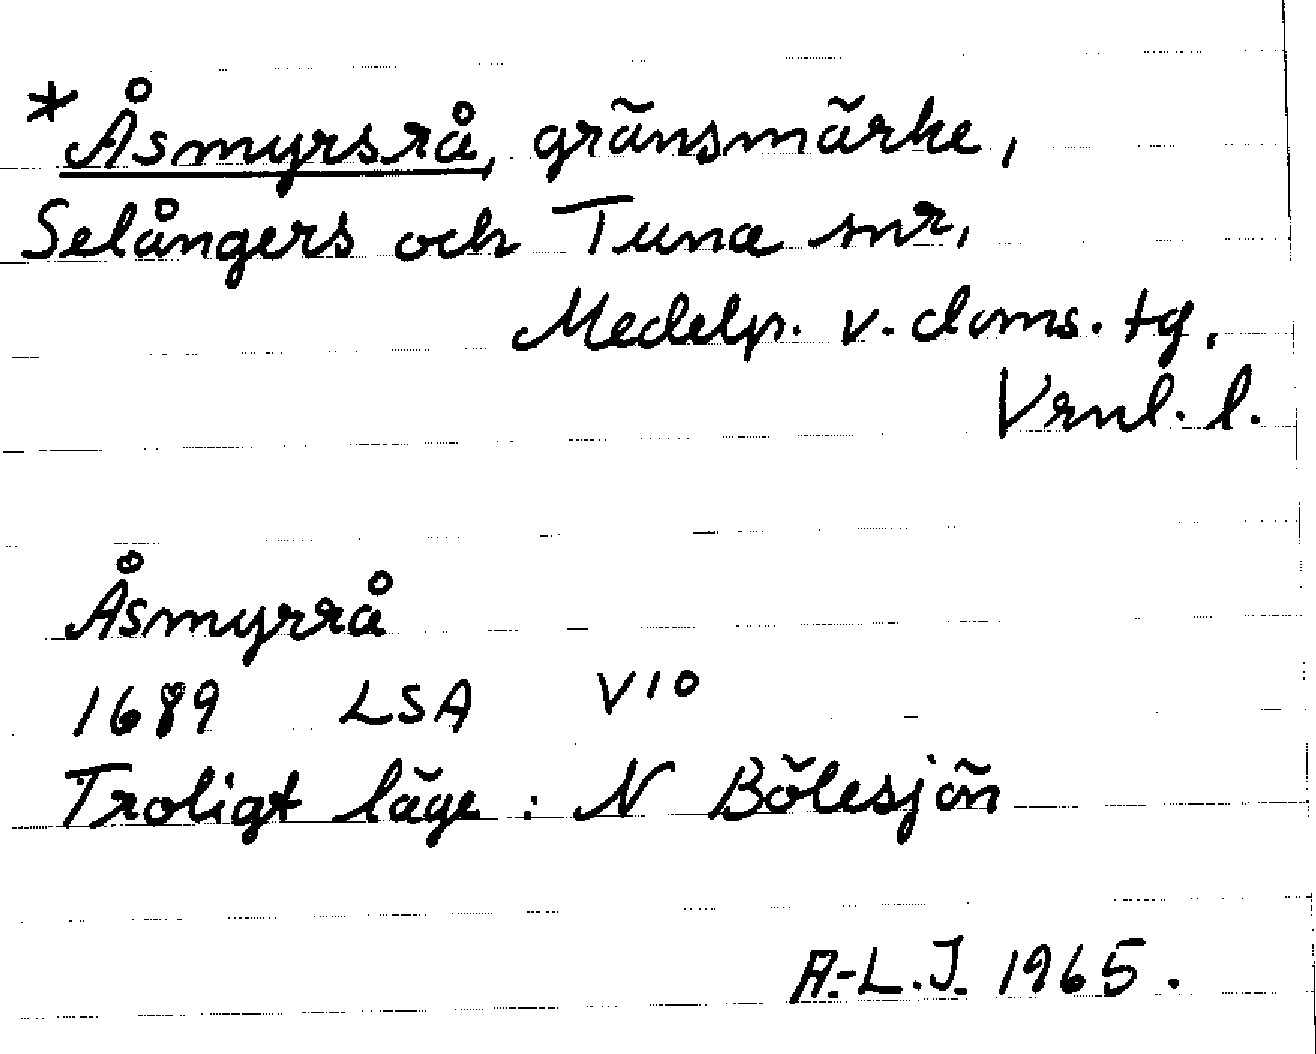 *Åsmyrsrå, gränsmärke,
Selångers och Tuna snr,
Medelp. v. doms. tg,
Vrnl. l.
Åsmyrrå
1689 LSA V10
Troligt läge: N Bölesjön
A.-L.J. 1965.